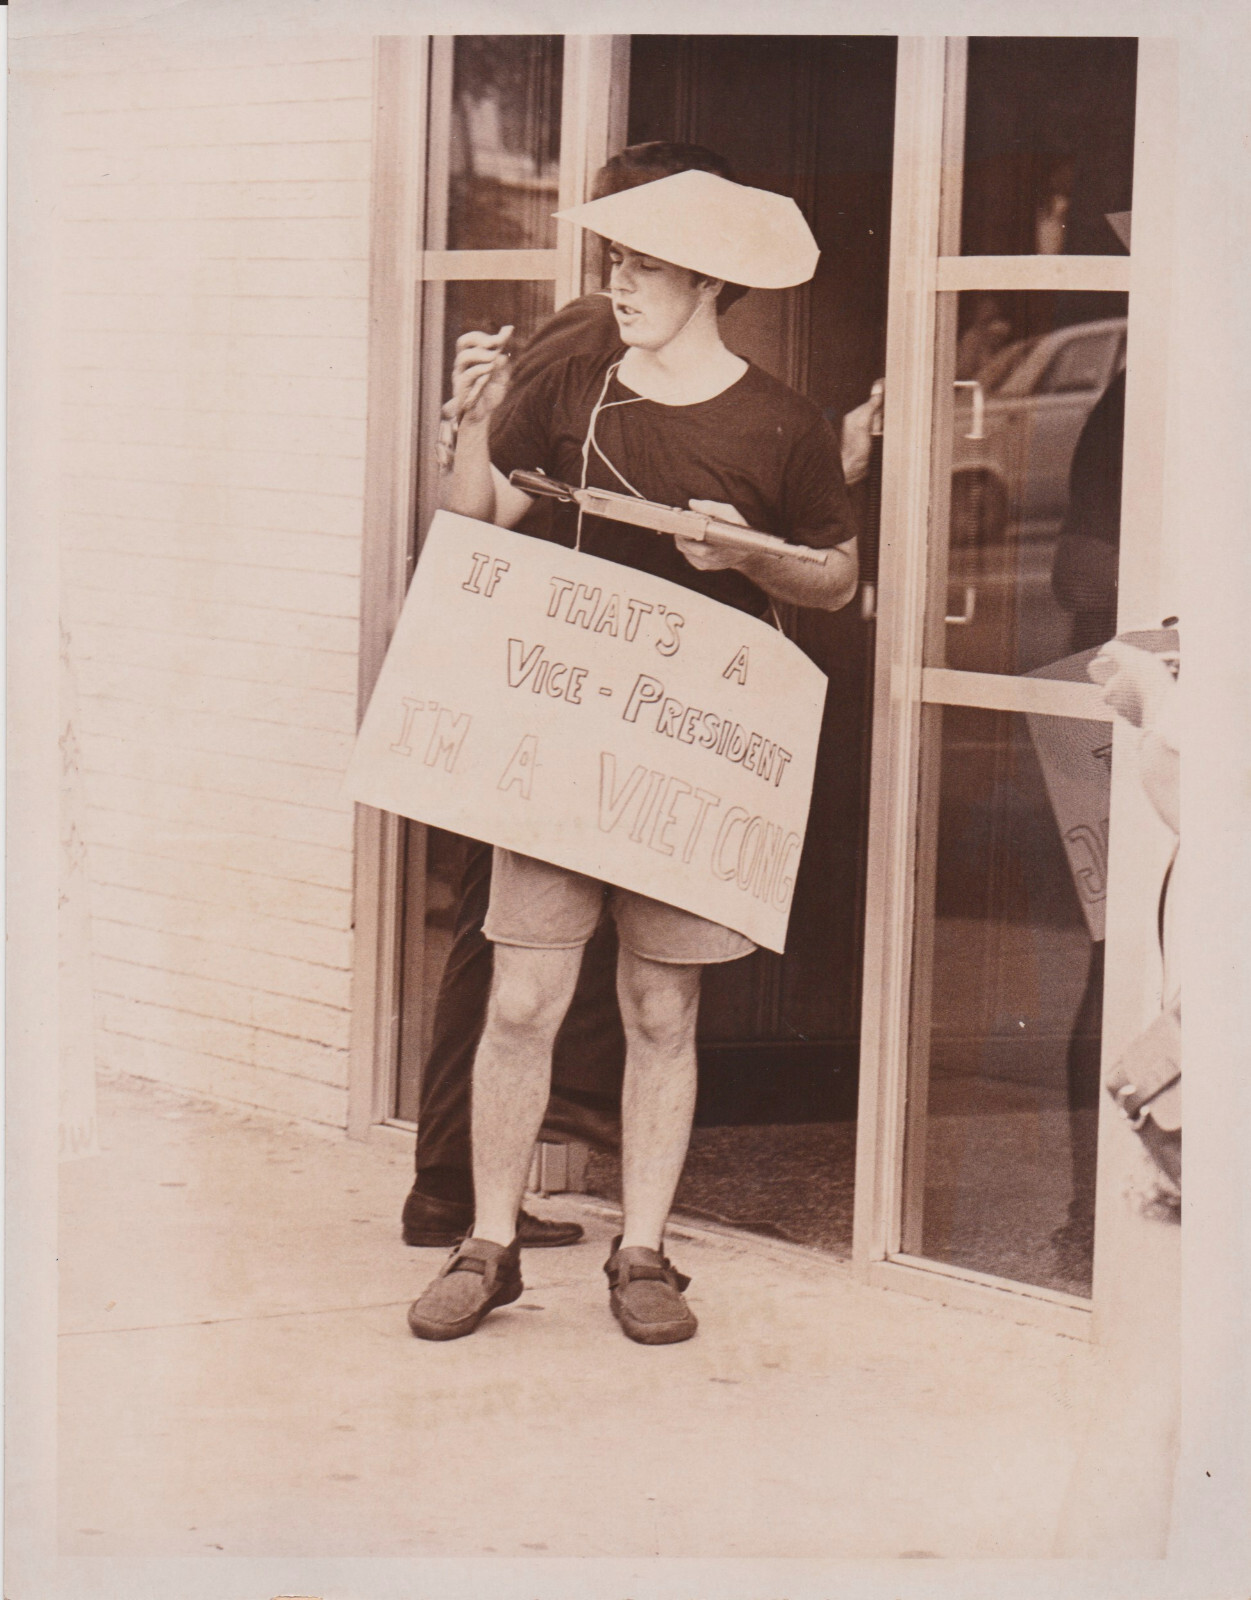 IF THAT'S A
VICE - PRESIDENT
I'M A VIET CONG